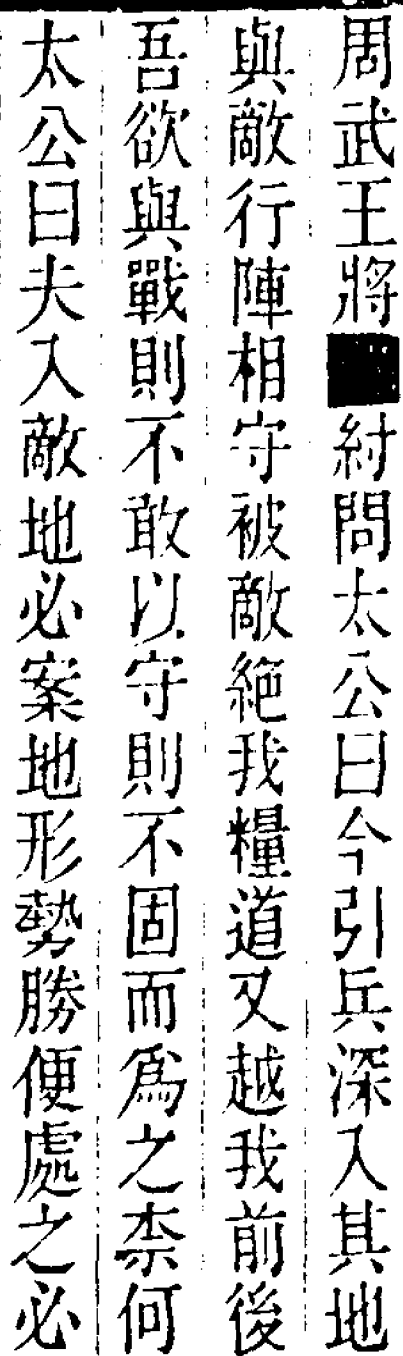 周武王將紂問太公曰今引兵深入其地
與敵行陣相守被敵絶我糧道又越我前後
吾欲與戰則不敢以守則不固而爲之柰何
太公曰夫入敵地必案地形勢勝便處之必